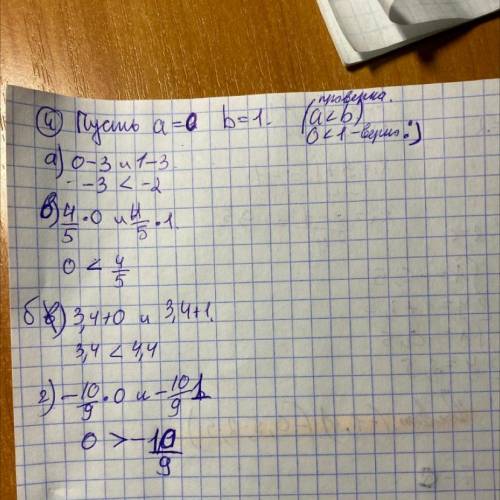 ④ Пусть a=0 b=1. (a<b) проверка.
0<1-верно :)
а) 0-3 и 1-3
-3 < -2
в) 4/5 · 0 и 4/5 · 1.
0 < 4/5
б) 3,4+0 и 3,4+1.
3,4 < 4,4
г) -10/9 · 0 и -10/9 ·1
0 > -10/9